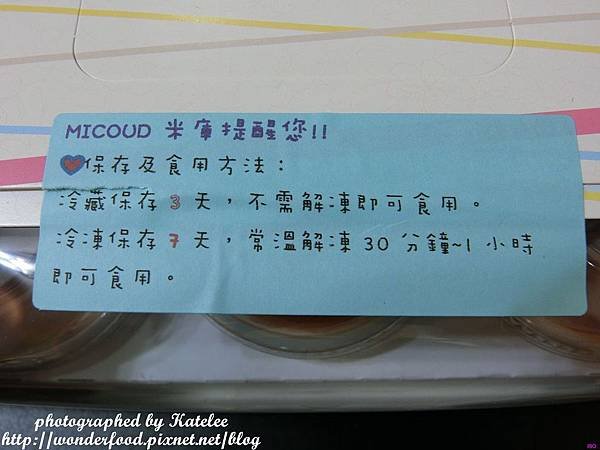 MICOUD 米庫提醒您!!
保存及食用方法：
冷藏保存3天，不需解凍即可食用。
冷凍保存7天，常溫解凍30分鐘~1小時
即可食用。
photographed by Katelee
http://wonderfood.pixnet.net/blog